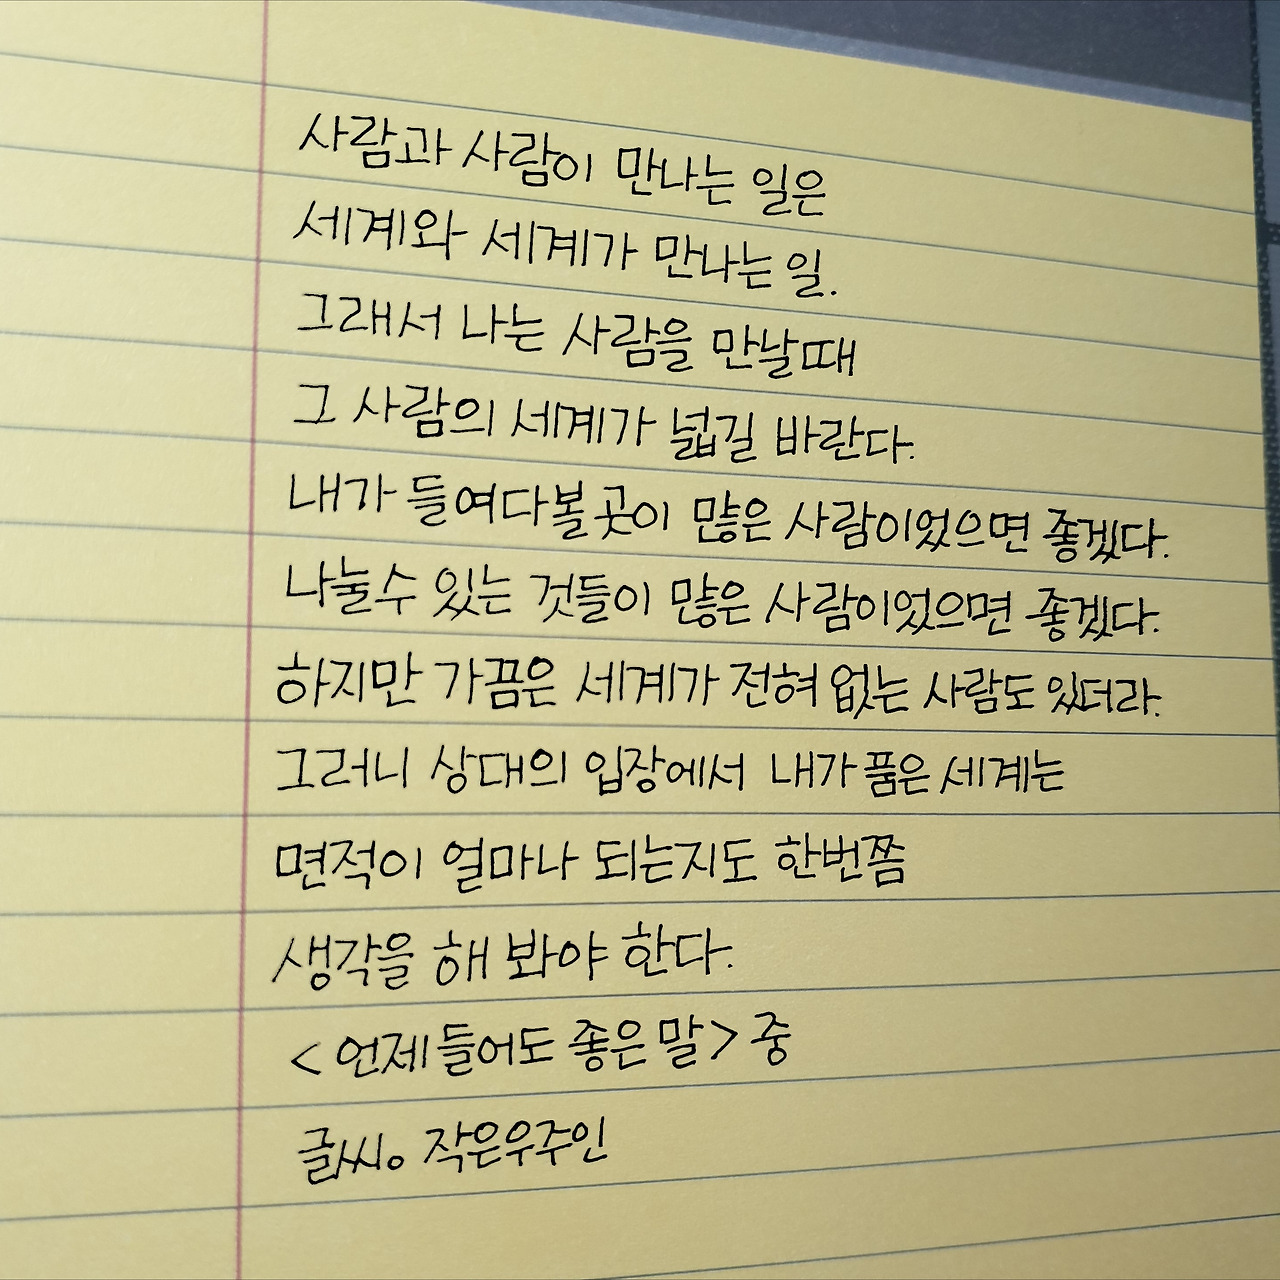 사람과 사람이 만나는 일은
세계와 세계가 만나는 일.
그래서 나는 사람을 만날때
그 사람의 세계가 넓길 바란다.
내가 들여다볼 곳이 많은 사람이었으면 좋겠다.
나눌수 있는 것들이 많은 사람이었으면 좋겠다.
하지만 가끔은 세계가 전혀 없는 사람도 있더라.
그러니 상대의 입장에서 내가 품은 세계는
면적이 얼마나 되는지도 한번쯤
생각을 해 봐야 한다.
<언제 들어도 좋은 말> 중
글씨。 작은우주인